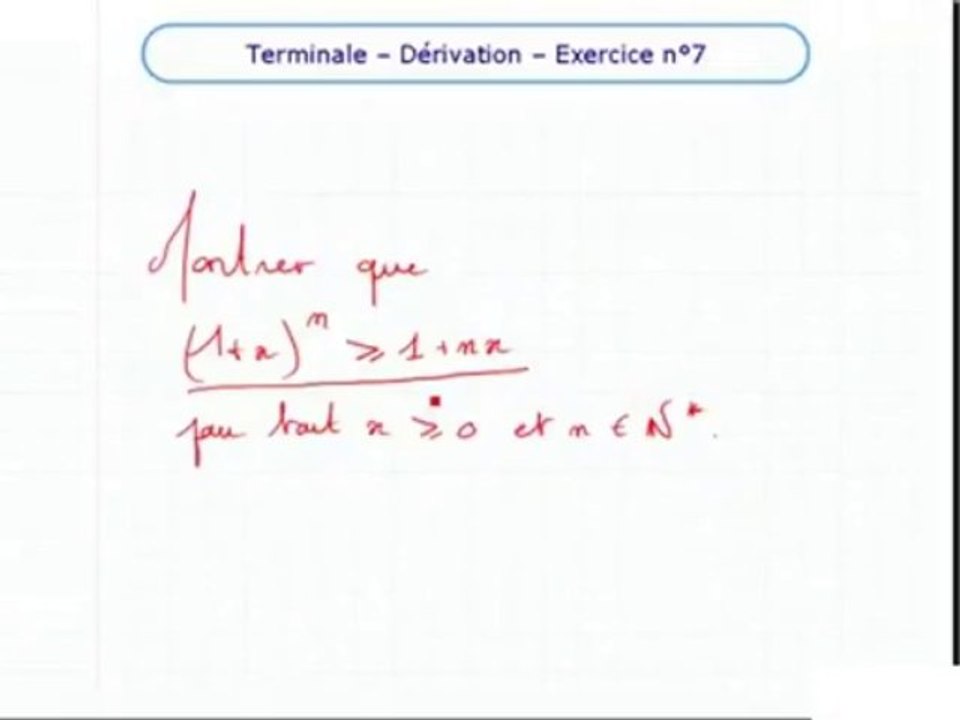 Terminale – Dérivation – Exercice n°7
Montrer que
(1+x)ⁿ ⩾ 1+nx
pour tout x ⩾ 0 et n ∈ ℕ*.